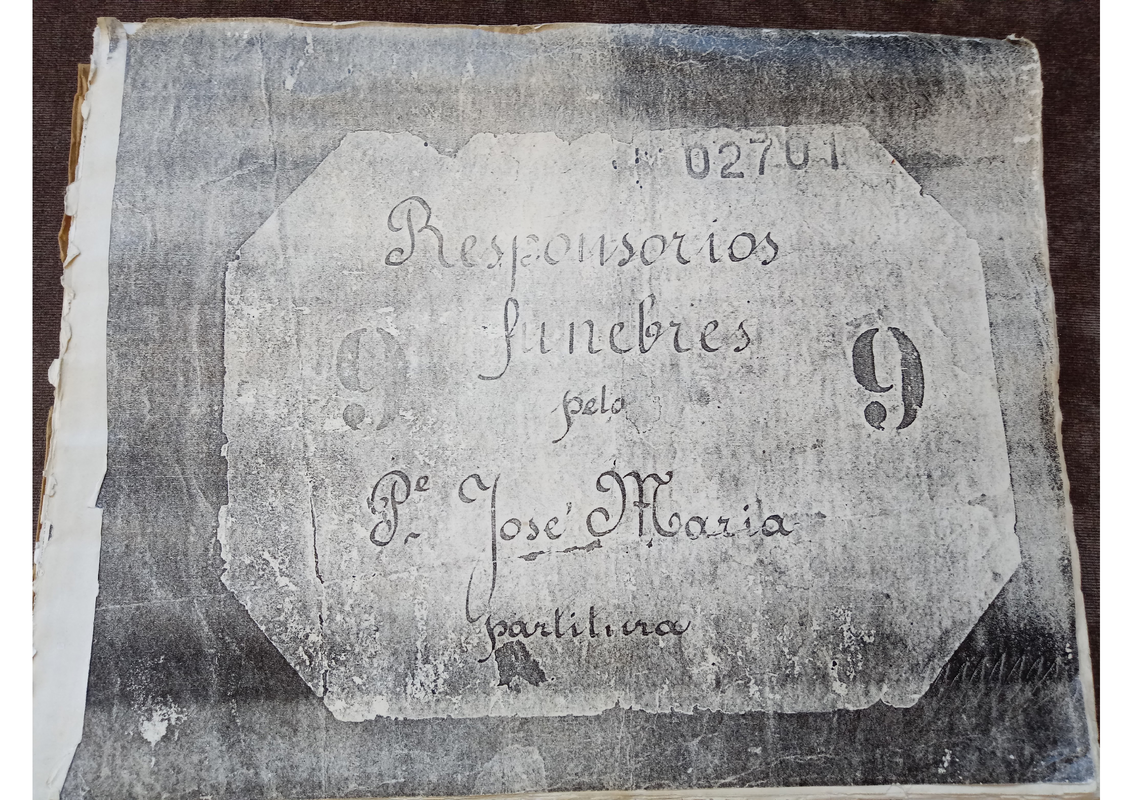 02701
Responsorios
funebres
9 9
pelo
Pe. José Maria
partitura